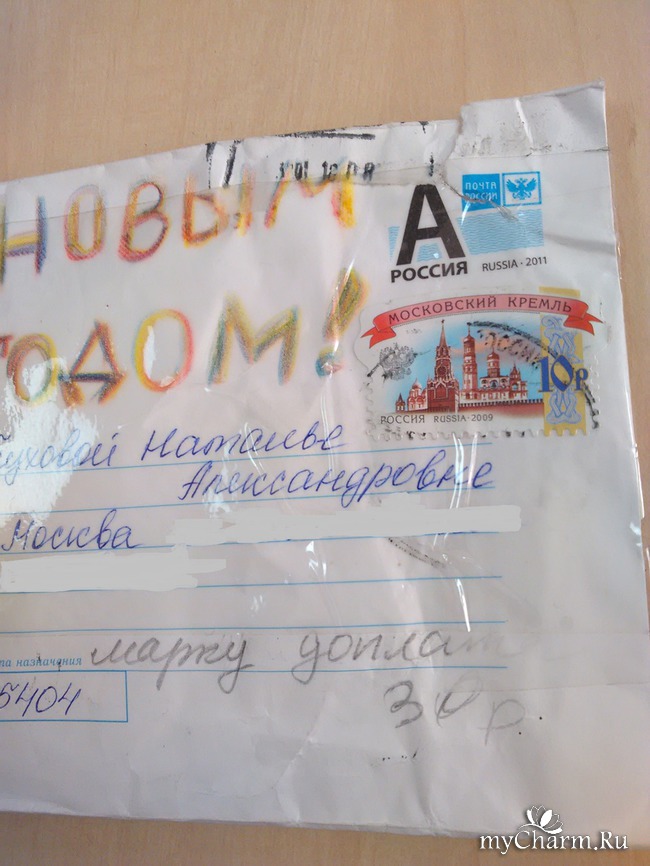 НОВЫМ
ГОДОМ!
ПОЧТА РОССИИ
А
РОССИЯ RUSSIA · 2011
МОСКОВСКИЙ КРЕМЛЬ
10 Р
РОССИЯ RUSSIA · 2009
уховой Наталье
Александровне
Москва
та назначения
марку доплат
5404
30 р.
myCharm.Ru